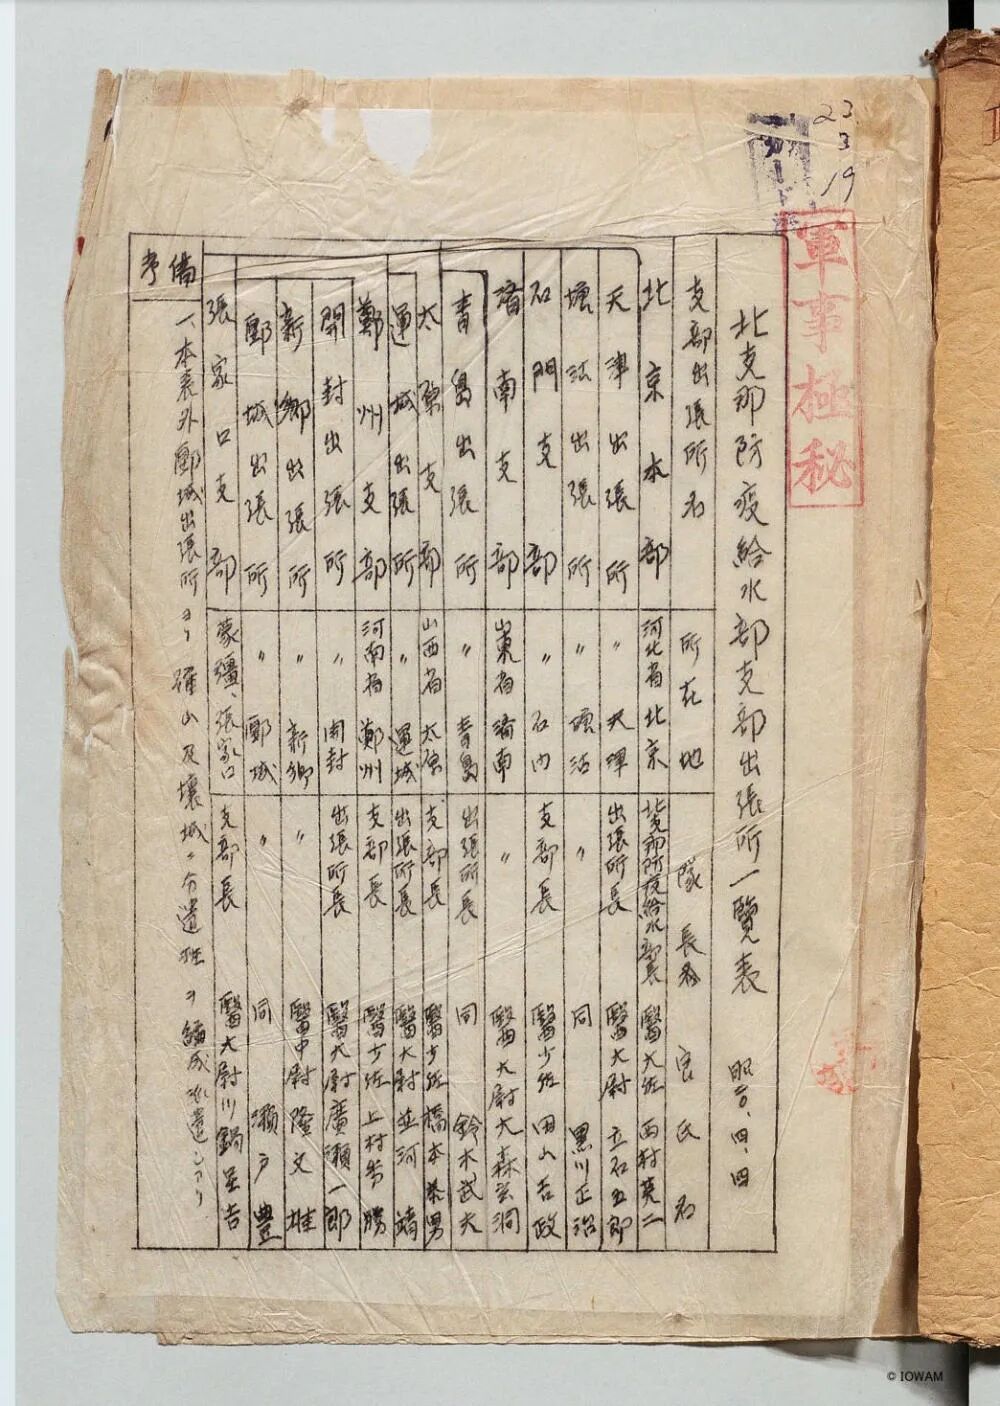 23
3
19
軍事極秘
北支那防疫給水部支部出張所一覧表 昭二〇、四、四
支部出張所名 所在地 隊長名 官氏名
北京本部 河北省北京 北支那防疫給水部長 醫大佐 西村英二
天津出張所 〃 天津 出張所長 醫大尉 立石五郎
塘沽出張所 〃 塘沽 〃 同 黒川正治
石門支部 〃 石門 支部長 醫少佐 田山吉政
濟南支部 山東省濟南 〃 醫大尉 大森玄洞
青島出張所 〃 青島 出張所長 同 鈴木武夫
太原支部 山西省太原 支部長 醫少佐 橋本 男
運城出張所 〃 運城 出張所長 醫大尉 並河靖
鄭州支部 河南省鄭州 支部長 醫少佐 上村秀勝
開封出張所 〃 開封 出張所長 醫大尉 廣瀬一郎
新鄉出張所 〃 新鄉 〃 醫中尉 隆文雄
郾城出張所 〃 郾城 〃 同 瀬戸豊
張家口支部 蒙疆、張家口 支部長 醫大尉 川鍋里吉
備考
一、本表外郾城出張所ヨリ確山及壤城ニ分遣班ヲ編成派遣シアリ
© IOWAM